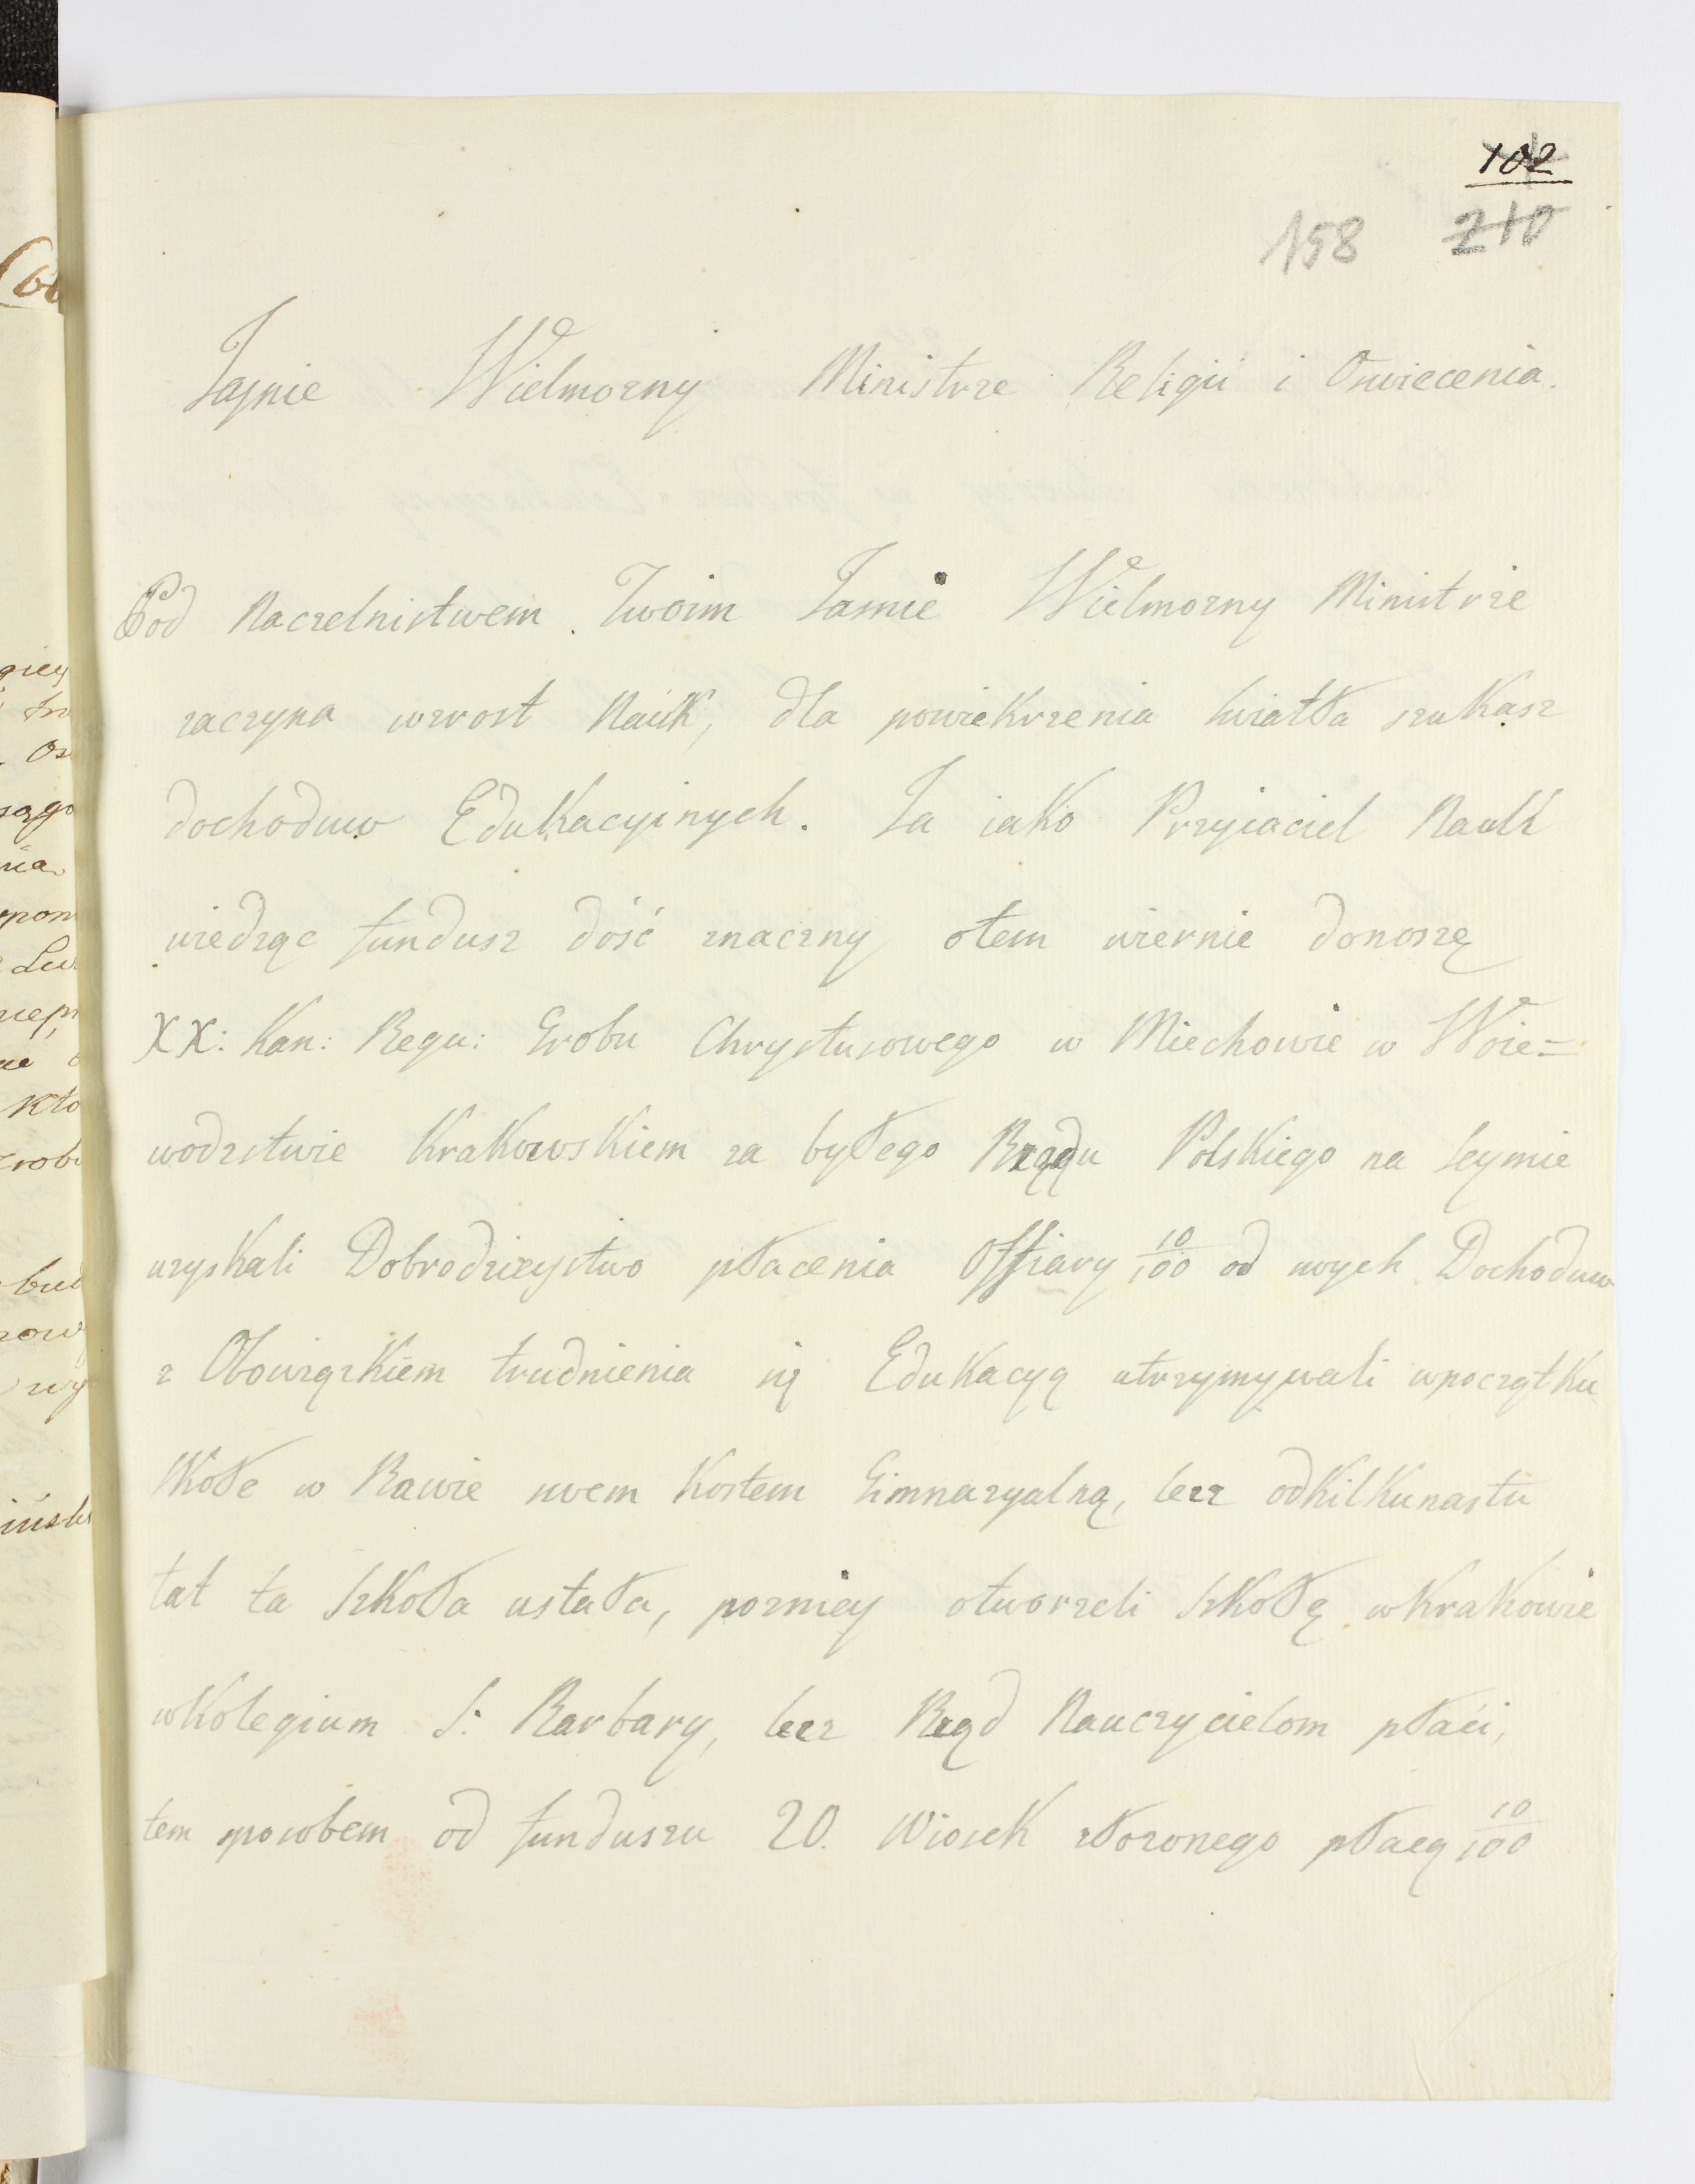 102
158 210
Jasnie Wielmozny Ministrze Religii i Oswiecenia.
Pod Naczelnistwem Twoim Jasnie Wielmozny Ministrze
zaczyna wzrost Nauk, dla powiekrzenia swiatła szukasz
dochoduw Edukacyinych. Ja iako Przyiaciel Nauk
wiedząc fundusz dość znaczny otem wiernie donoszę
XX: Kan: Regu: Grobu Chrystusowego w Miechowie w Woie=
wodztwie Krakowskiem za byłego Rządu Polskiego na Seymie
uzyskali Dobrodzieystwo płacenia Offiary 10/100 od swych Dochoduw
z Obowiązkiem trudnienia się Edukacyą utrzymywali wpoczątku
Skołe w Rawie swem Kostem Gimnazyalną, lecz odkilkunastu
lat ta Szkoła ustała, pozniey otworzeli Szkołę wKrakowie
wKolegium S: Barbary, lecz Rząd Nauczycielom płaci,
tem sposobem od funduszu 20. Wiosek złozonego płacą 10/100